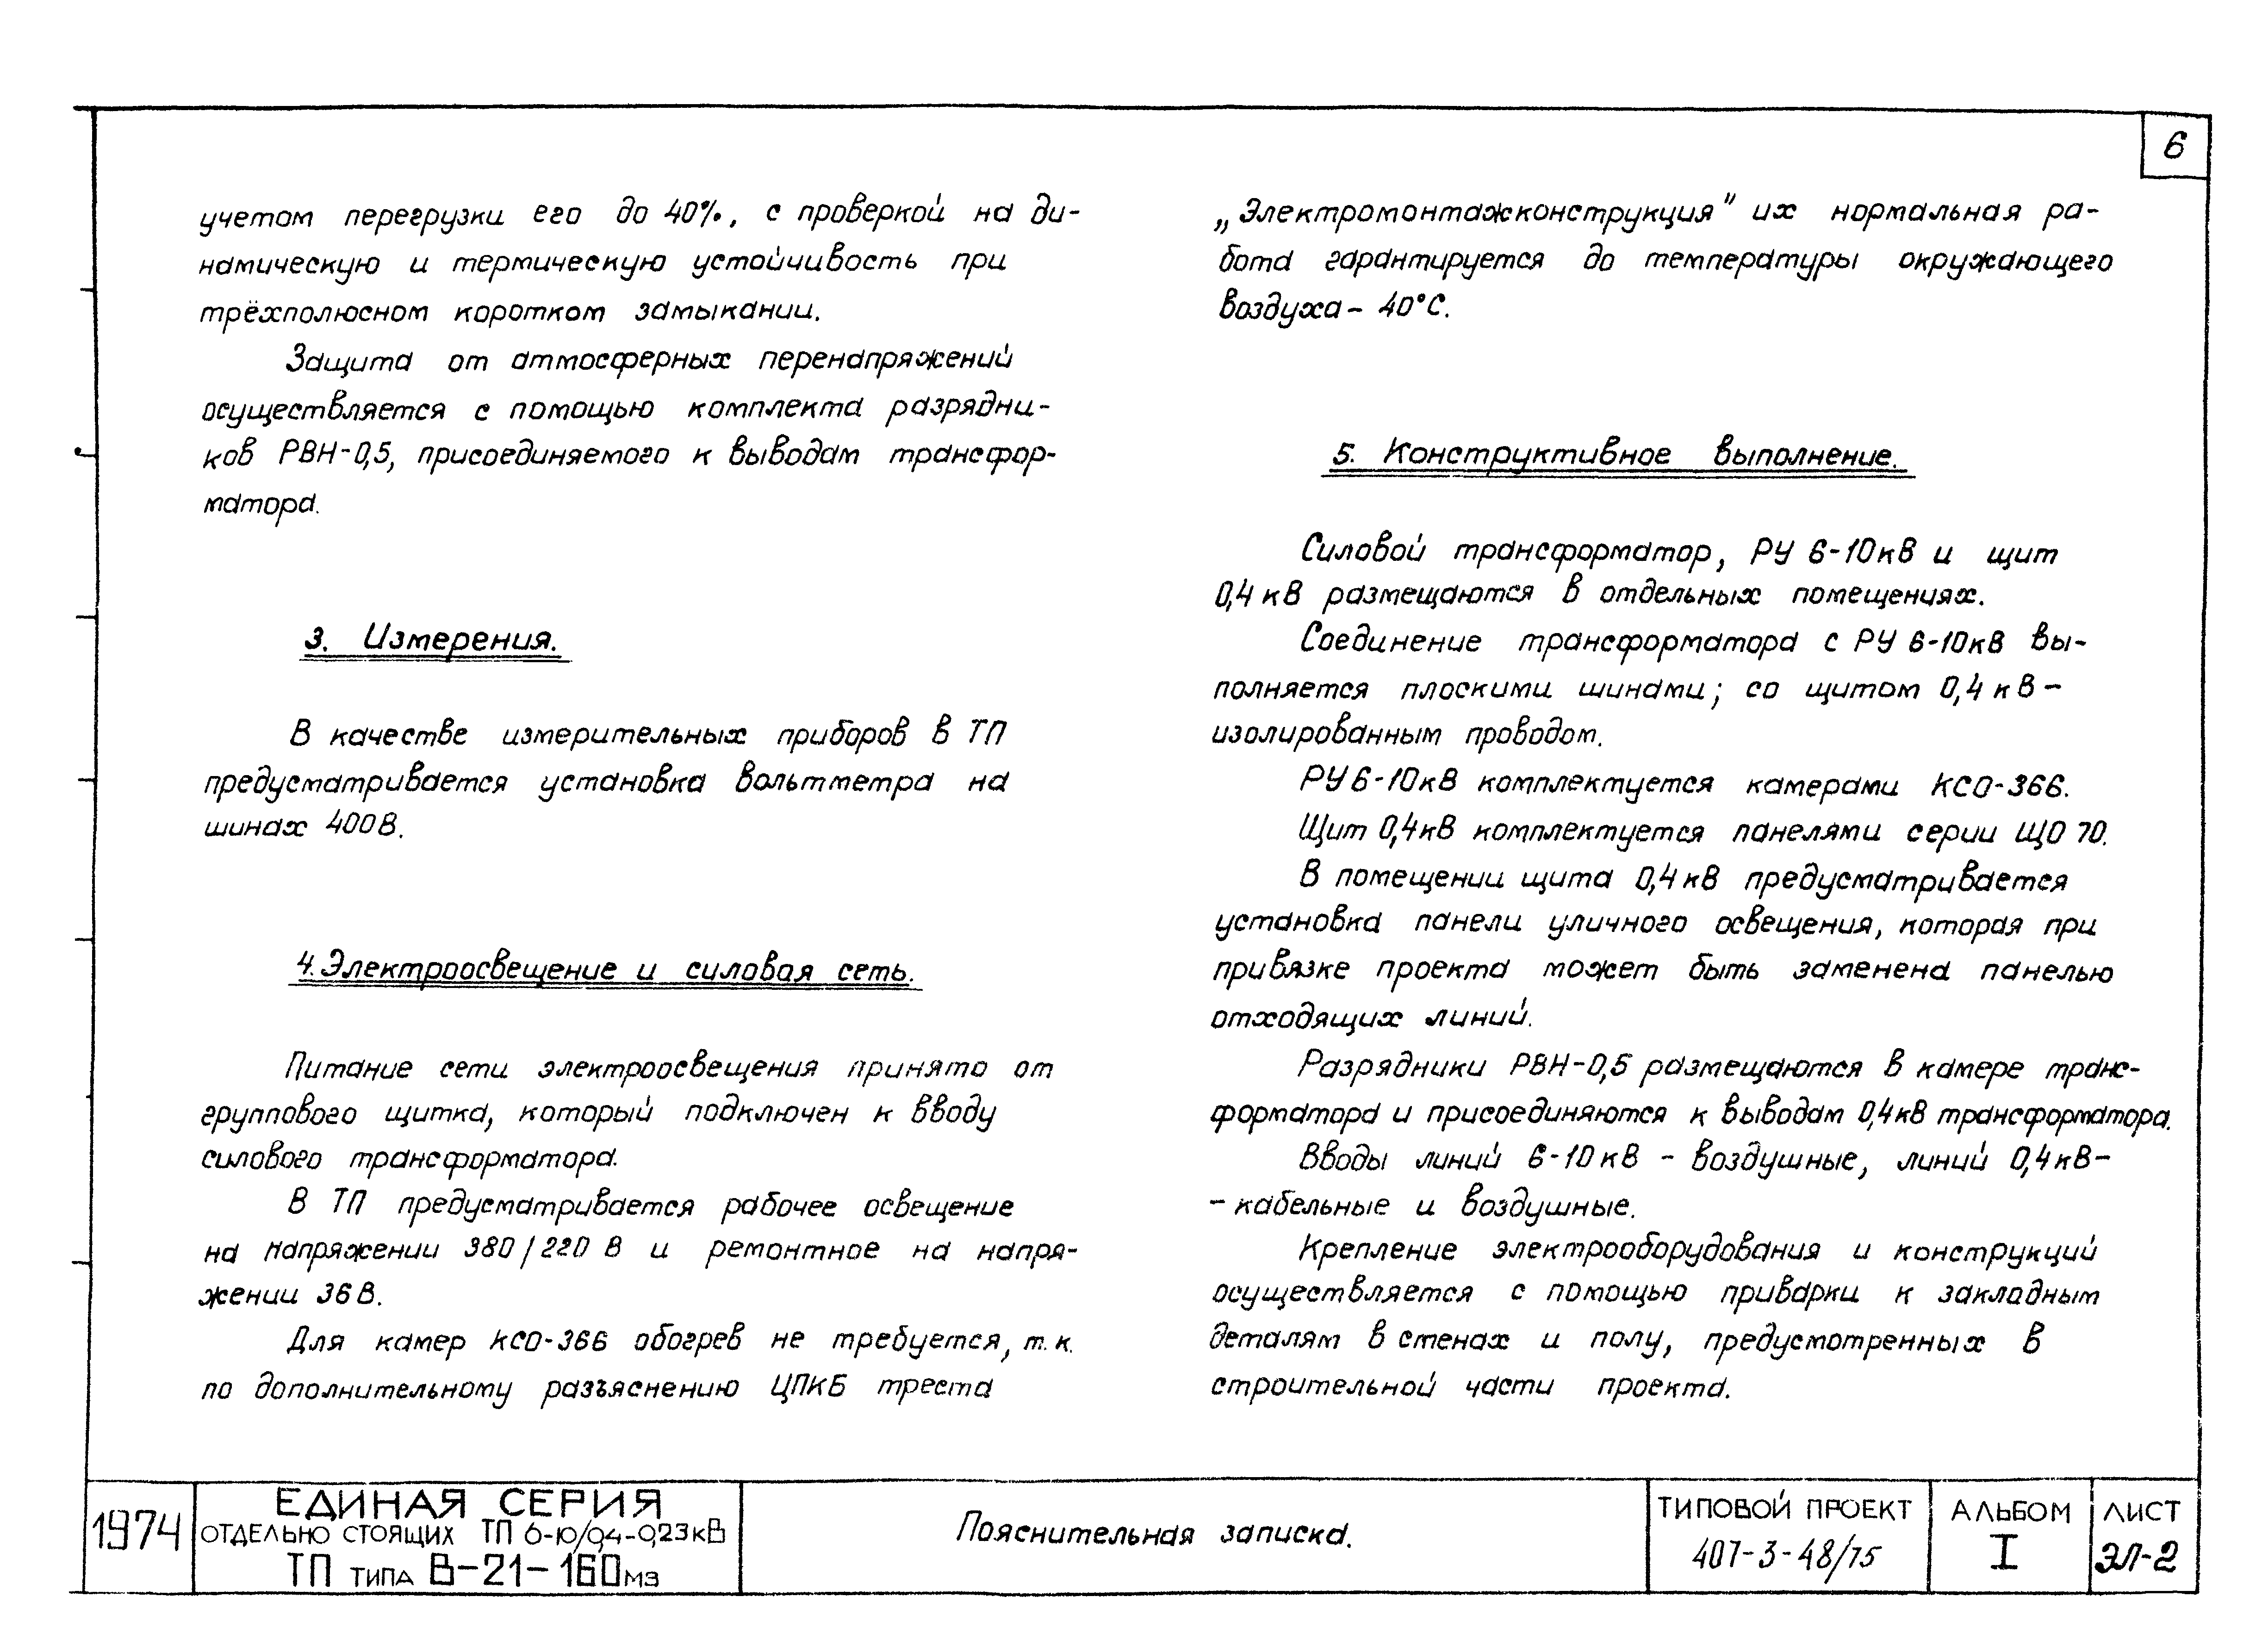 6
учетом перегрузки его до 40%, с проверкой на ди-
намическую и термическую устойчивость при
трёхполюсном коротком замыкании.
Защита от атмосферных перенапряжений
осуществляется с помощью комплекта разрядни-
ков РВН-0,5, присоединяемого к выводам трансфор-
матора.
3. Измерения.
В качестве измерительных приборов в ТП
предусматривается установка вольтметра на
шинах 400В.
4. Электроосвещение и силовая сеть.
Питание сети электроосвещения принято от
группового щитка, который подключен к вводу
силового трансформатора.
В ТП предусматривается рабочее освещение
на напряжении 380/220 В и ремонтное на напря-
жении 36В.
Для камер КСО-366 обогрев не требуется, т.к.
по дополнительному разъяснению ЦПКБ треста
„Электромонтажконструкция" их нормальная ра-
бота гарантируется до температуры окружающего
воздуха - 40°С.
5. Конструктивное выполнение.
Силовой трансформатор, РУ 6-10кВ и щит
0,4кВ размещаются в отдельных помещениях.
Соединение трансформатора с РУ 6-10кВ вы-
полняется плоскими шинами; со щитом 0,4кВ -
изолированным проводом.
РУ 6-10кВ комплектуется камерами КСО-366.
Щит 0,4кВ комплектуется панелями серии ЩО 70.
В помещении щита 0,4кВ предусматривается
установка панели уличного освещения, которая при
привязке проекта может быть заменена панелью
отходящих линий.
Разрядники РВН-0,5 размещаются в камере транс-
форматора и присоединяются к выводам 0,4кВ трансформатора.
Вводы линий 6-10кВ - воздушные, линий 0,4кВ-
- кабельные и воздушные.
Крепление электрооборудования и конструкций
осуществляется с помощью приварки к закладным
деталям в стенах и полу, предусмотренных в
строительной части проекта.
1974
ЕДИНАЯ СЕРИЯ
ОТДЕЛЬНО СТОЯЩИХ ТП 6-10/0,4-0,23кВ
ТП ТИПА В-21-160м3
Пояснительная записка.
ТИПОВОЙ ПРОЕКТ
407-3-48/75
АЛЬБОМ
I
ЛИСТ
ЭЛ-2